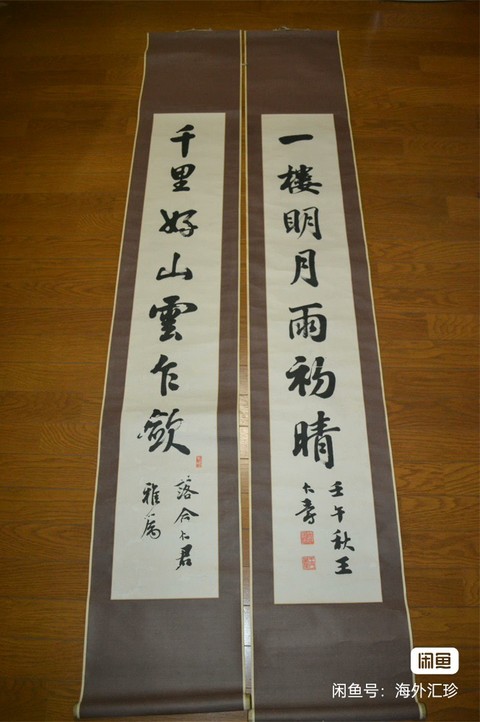 一樓明月雨初晴
壬午秋王
大壽
千里好山雲乍歛
落合 君
雅屬
闲鱼
闲鱼号：海外汇珍